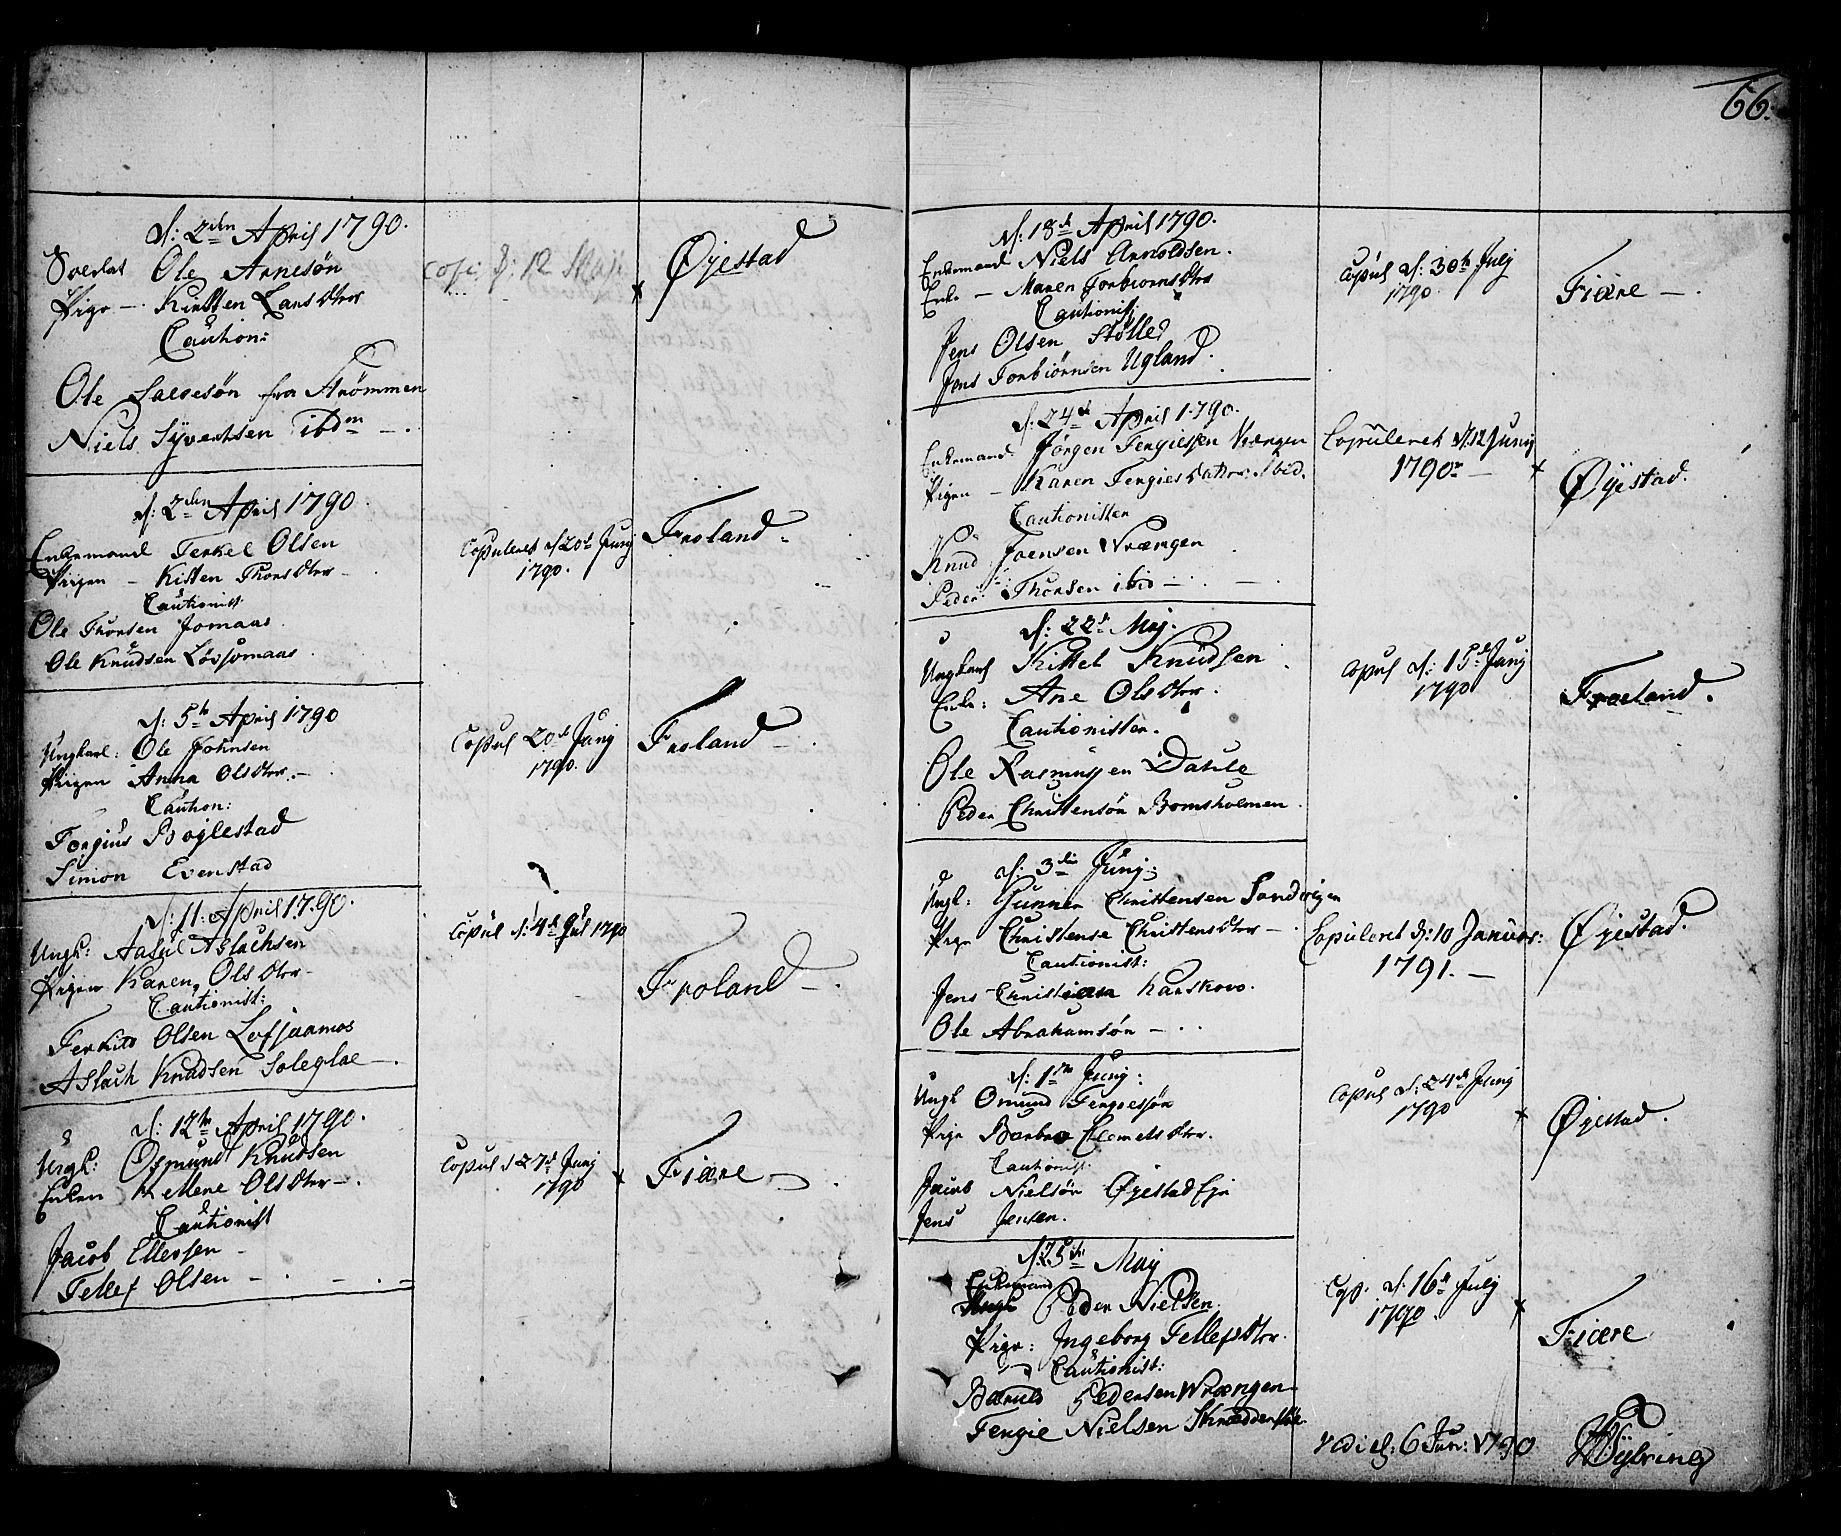 66.
d: 2den April 1790.
Soldat Ole Arnesøn
Pige — Kirsten Larsdtter
Caution:
Ole Salvesøn fra Strømmen
Niels Syvertsen ibdm — .
Copi. d: 12 Maji
Øyestad
d: 2den April 1790
Enkemand Terkel Olsen
Pigen — Kisten Thorsdtter
Cautionist
Ole Thorsen Jomaas
Ole Knudsen Løvjomaas
Copuleret d 20de Junj
1790.
Froland
d: 5te April 1790
Ungkarl: Ole Johnsen
Pigen Anna Olsdtter. —
Caution:
Torgius Boylestad
Simon Evenstad
Copul 20de Junj
1790.
Froland — .
d: 11: April 1790.
Ungk: Aasul Aslachsen
Pigen Karen Olsdtter —
Cautionist:
Terkild Olsen Lofsjaamos
Aslach Knudsen Soleglae — .
Copul d: 4de Jul 1790
Froland — .
d: 12te April 1790.
Ungk: Osmund Knudsen
Enken Kellene Olsdtter — .
Cautionist
Jacob Ellevsen —
Tellef Olsen — . — . =
Copul d 27de Junj
1790
Fiære — .
d: 18de April 1790.
Enkemand Niels Arnoldsen.
Enke — Maren Torbiornsdtter
Cautionist
Jens Olsen Støller
Jens Torbiørnsen Ugland.
Copul d: 30te Julj
1790.
Fiære — .
d: 24de April 1790.
Enkemand Jørgen Tergiessen Vrængen
Pigen — Karen Tergiesdatter ibid.
Cautionisten
Knud Joensen Vrængen
Peder Thorsen ibid — . — .
Copuleret d. 12 Junij
1790 —
Øyestad.
d: 22de Maj.
Ungkarl Kittel Knudsen
Enke: Ane Olsdtter.
Cautionisten.
Ole Rasmussen Dahle
Peder Christensøn Bomsholmen.
Copul d: 15de Junj
1790
Froeland.
d: 3die Junj:
Ungk: Gunner Christensen Sandvigen
Pige Christense Christensdtter —
Cautionist:
Jens Christian Karskovo.
Ole Abrahamsøn — . .
Copuleret d: 10 Januar:
1791. —
Øyestad.
d: 1ste Junj:
Ungk Omund Tergiesøn
Pige Barbro Clemetsdtter.
Cautionist:
Jacob Nielsøn Øyestad Eje
Jens Jensen.
Copul d: 24de Junj
1790
Øyestad.
d. 25de Maj
Enkemand
Ungk Peder Nielsen.
Pige: Ingeborg Tellefsdtter.
Cautionist:
Pedersen Wrængen
Tergie Nielsen
Cop. d: 16de Julj
1790.
Fiære
d: 6 Jun: 1790